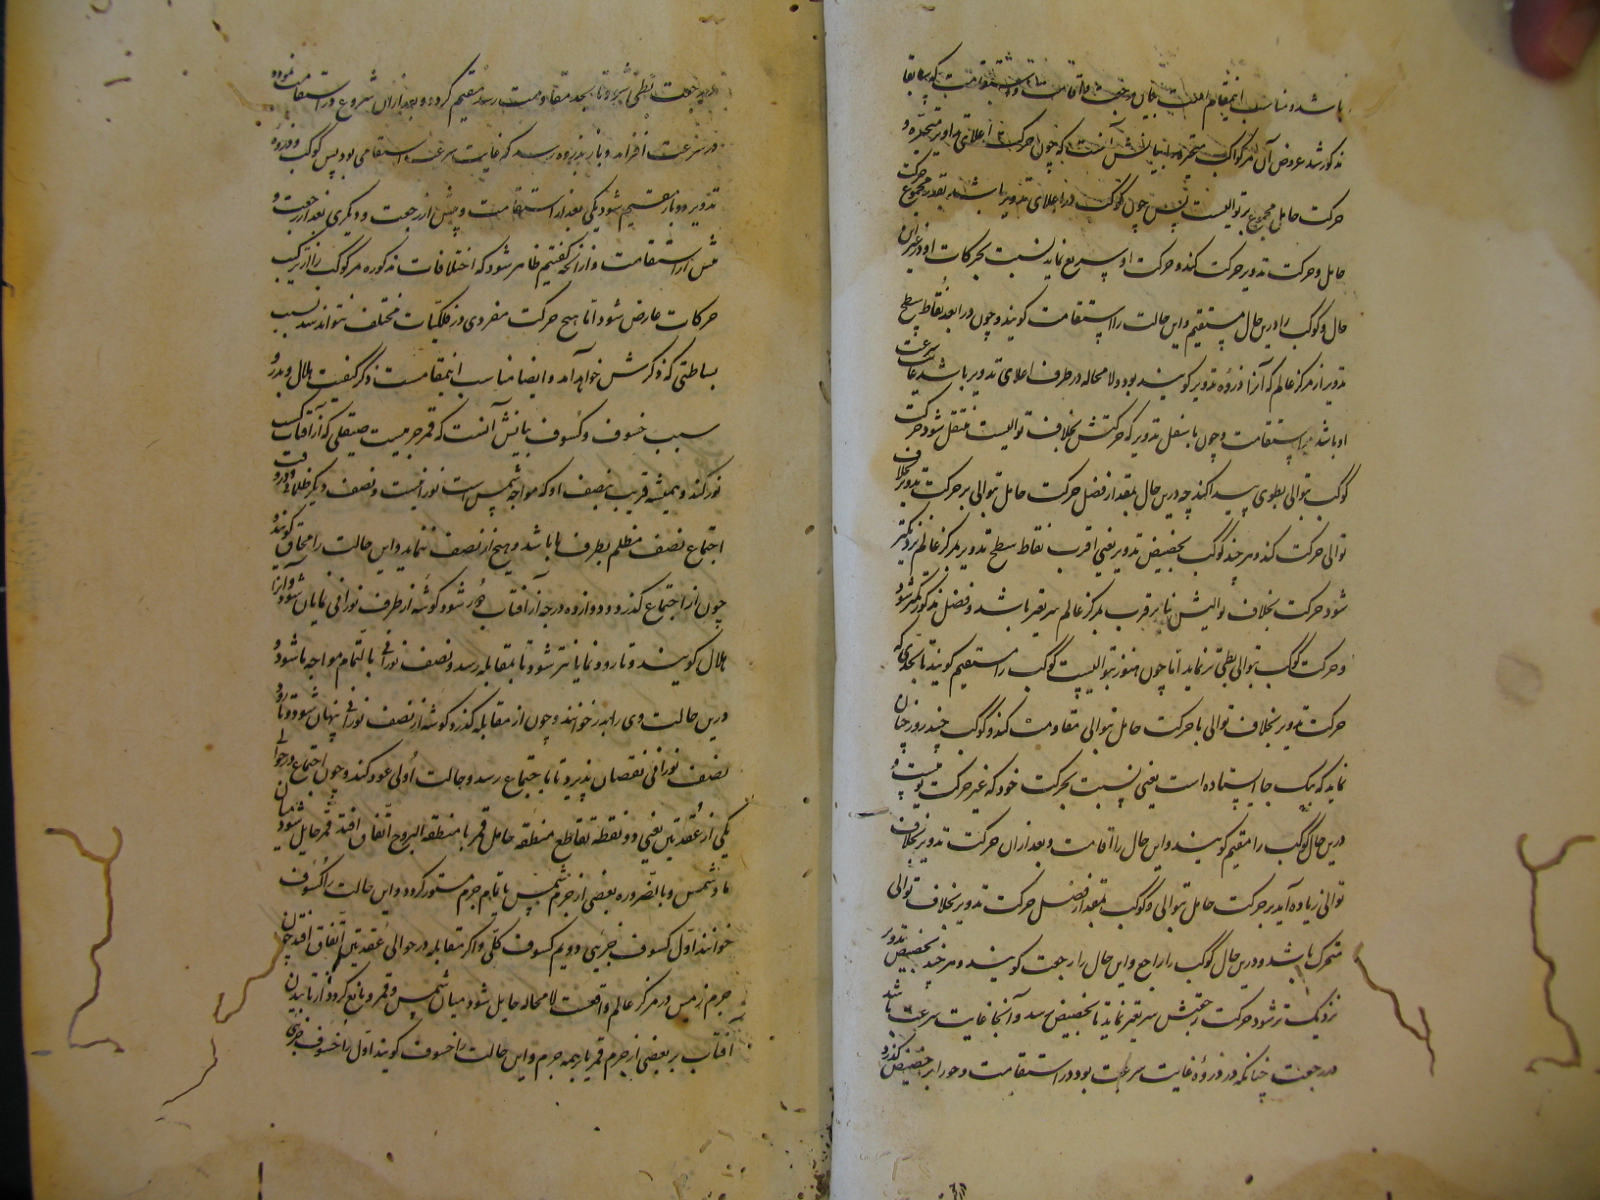 باشد و مناسب اینمقام است بیان رجعت و اقامت و استقامت که سابقا
مذکور شد عروض آن مر کواکب متحیره را بیانش آنست که چون حرکت اعلای تداویر متحیره و
حرکت حامل مجموع بر توالیست پس چون کوکب در اعلای تدویر باشد بقدر مجموع حرکت
حامل و حرکت تدویر حرکت کند و حرکت او سریع نماید نسبت بحرکات او در غیر این
حال و کوکب را درین حال مستقیم و این حالت را استقامت گویند و چون در ابعد نقاط سطح
تدویر از مرکز عالم که آنرا ذروه تدویر گویند بود و لا محاله در طرف اعلای تدویر باشد غایت سرعت
او باشد در استقامت و چون باسفل تدویر که حرکتش بخلاف توالیست منتقل شود حرکت
کوکب بتوالی بطوی پیدا کند چه درین حال بمقدار فضل حرکت حامل بتوالی بر حرکت تدویر بخلاف
توالی حرکت کند و هر چند کوکب بحضیض تدویر یعنی اقرب نقاط سطح تدویر بمرکز عالم نزدیکتر
شود حرکت بخلاف توالیش بنا بر قرب بمرکز عالم سریعتر باشد و فضل مذکور کمتر شود
و حرکت کوکب بتوالی بطی تر نماید اما چون هنوز بتوالیست کوکب را مستقیم گویند تا بحدی که
حرکت تدویر بخلاف توالی با حرکت حامل بتوالی مقاومت کند و کوکب چند روز چنان
نماید که بیک جا ایستاده است یعنی نسبت بحرکت خود که غیر حرکت یومیست و
درین حال کوکب را مقیم گویند و این حال را اقامت و بعد از آن حرکت تدویر بخلاف
توالی زیاده آید بر حرکت حامل بتوالی و کوکب بمقدار فضل حرکت تدویر بخلاف توالی
متحرک باشد و درین حال کوکب را راجع و این حال را رجعت گویند و هر چند بحضیض تدویر
نزدیک تر شود حرکت رجعتش سریعتر نماید تا بحضیض رسد و آنجا غایت سرعت باشد
در رجعت چنانکه در ذروه غایت سرعت بود در استقامت و چون از حضیض گذرد
رجعت بطی شود تا بحد مقاومت رسد مقیم گردد و بعد از آن شروع در استقامت نموده
در سرعت افزاید و باز بذروه رسد که غایت سرعت استقامی بود پس کوکب در دوره
تدویر دو بار مقیم شود یکی بعد از استقامت و پیش از رجعت و دیگری بعد از رجعت و
پیش از استقامت و از آنچه گفتیم ظاهر شود که اختلافات مذکوره مر کوکب را از ترکیب
حرکات عارض شود اما هیچ حرکت مفردی در فلکیات مختلف نتواند شد بسبب
بساطتی که ذکرش خواهد آمد و ایضا مناسب اینمقامست ذکر کیفیت هلال و بدر و
سبب خسوف و کسوف بیانش آنست که قمر جرمیست صیقلی که از آفتاب کسب
نور کند و همیشه قریب بنصف او که مواجه شمس است نورانیست و نصف دیگر ظلمانی و در وقت
اجتماع نصف مظلم بطرف ما باشد و هیچ از نصف ننماید و این حالت را محاق گویند و
چون از اجتماع گذرد و دوازده درجه از آفتاب دور شود گوشه از طرف نورانی نمایان شود و آنرا
هلال گویند و تا رود نمایانتر شود تا بمقابله رسد و نصف نورانی بالتمام مواجه ما شود و
درین حالت وی را بدر خوانند و چون از مقابله گذرد گوشه از نصف نورانی پنهان شود و تا رود
نصف نورانی نقصان پذیرد تا باجتماع رسد و حالت اولی عود کند و چون اجتماع در حوالی
یکی از عقدتین یعنی دو نقطه تقاطع منطقه حامل قمر با منطقة البروج اتفاق افتد قمر حایل شود میان
ما و شمس و بالضروره بعضی از جرم شمس یا تمام جرم مستور گردد و این حالت را کسوف
خوانند اول کسوف جزیی و دویم کسوف کلی و اگر مقابله در حوالی عقدتین اتفاق افتد چون
جرم زمین در مرکز عالم واقعست لا محاله حایل شود میان شمس و قمر و مانع گردد از تابیدن
آفتاب بر بعضی از جرم قمر یا بهمه جرم و این حالت را خسوف گویند اول را خسوف جزیی